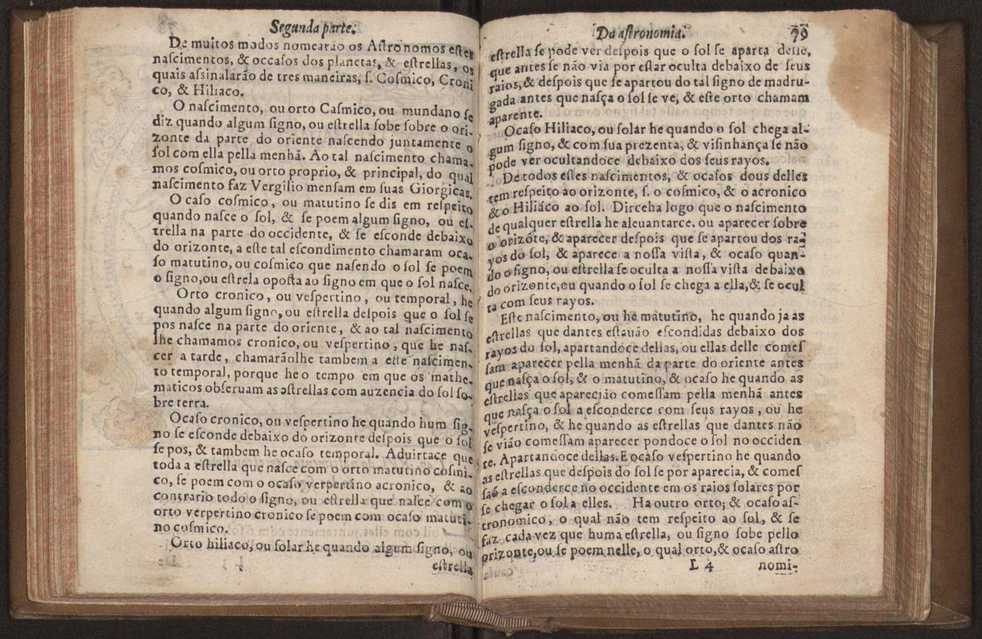 Segunda parte.
De muitos modos nomearão os Astronomos estes
nascimentos, & occasos dos planetas, & estrellas, os
quais assinalarão de tres maneiras, s. Cosmico, Croni
co, & Hiliaco.
O nascimento, ou orto Casmico, ou mundano se
diz quando algum signo, ou estrella sobe sobre o ori-
zonte da parte do oriente nascendo juntamente o
sol com ella pella menhã. Ao tal nascimento chama-
mos cosmico, ou orto proprio, & principal, do qual
nascimento faz Vergilio mensam em suas Giorgicas.
O caso cosmico, ou matutino se dis em respeito
quando nasce o sol, & se poem algum signo, ou es-
trella na parte do occidente, & se esconde debaixo
do orizonte, a este tal escondimento chamaram oca-
so matutino, ou cosmico que nasendo o sol se poem
o signo, ou estrela oposta ao signo em que o sol nasce.
Orto cronico, ou vespertino, ou temporal, he
quando algum signo, ou estrella despois que o sol se
pos nasce na parte do oriente, & ao tal nascimento
lhe chamamos cronico, ou vespertino, que he nas-
cer a tarde, chamarãolhe tambem a este nascimen-
to temporal, porque he o tempo em que os mathe-
maticos obseruam as astrellas com auzencia do sol so-
bre terra.
Ocaso cronico, ou vespertino he quando hum sig-
no se esconde debaixo do orizonte despois que o sol
se pos, & tambem he ocaso temporal. Aduirtace que
toda a estrella que nasce com o orto matutino cosmi-
co, se poem com o ocaso verpertino acronico, & ao
contrario todo o signo, ou estrella que nasce com o
orto verpertino cronico se poem com ocaso matuti-
no cosmico.
Orto hiliaco, ou solar he quando algum signo, ou
estrella
Da astronomia.
79
estrella se pode ver despois que o sol se aparta delle,
que antes se não via por estar oculta debaixo de seus
raios, & despois que se apartou do tal signo de madru-
gada antes que nasça o sol se ve, & este orto chamam
aparente.
Ocaso Hiliaco, ou solar he quando o sol chega al-
gum signo, & com sua prezenta, & visinhança se não
pode ver ocultandoce debaixo dos seus rayos.
De todos estes nascimentos, & ocasos dous delles
tem respeito ao orizonte, s. o cosmico, & o acronico
& o Hiliáco ao sol. Dirceha logo que o nascimento
de qualquer estrella he aleuantarce. ou aparecer sobre
o orizõte, & aparecer despois que se apartou dos ra-
yos do sol, & aparece a nossa vista, & ocaso quan-
do o signo, ou estrella se oculta a nossa vista debaixo
do orizonte, ou quando o sol se chega a ella, & se ocul
ta com seus rayos.
Este nascimento, ou he matutino, he quando ja as
estrellas que dantes estauão escondidas debaixo dos
rayos do sol, apartandoce dellas, ou ellas delle comes
sam aparecer pella menhã da parte do oriente antes
que nasça o sol, & o matutino, & ocaso he quando as
estrellas que aparecião comessam pella menhã antes
que nasça o sol a esconderce com seus rayos, ou he
vespertino, & he quando as estrellas que dantes não
se vião comessam aparecer pondoce o sol no occiden
te. Apartandoce dellas. E ocaso vespertino he quando
as estrellas que despois do sol se por aparecia, & comes
saõ a esconderce no occidente em os raios solares por
se chegar o sol a elles. Ha outro orto; & ocaso as-
tronomico, o qual não tem respeito ao sol, & se
faz cada vez que huma estrella, ou signo sobe pello
orizonte, ou se poem nelle, o qual orto, & ocaso astro
L 4 nomi-